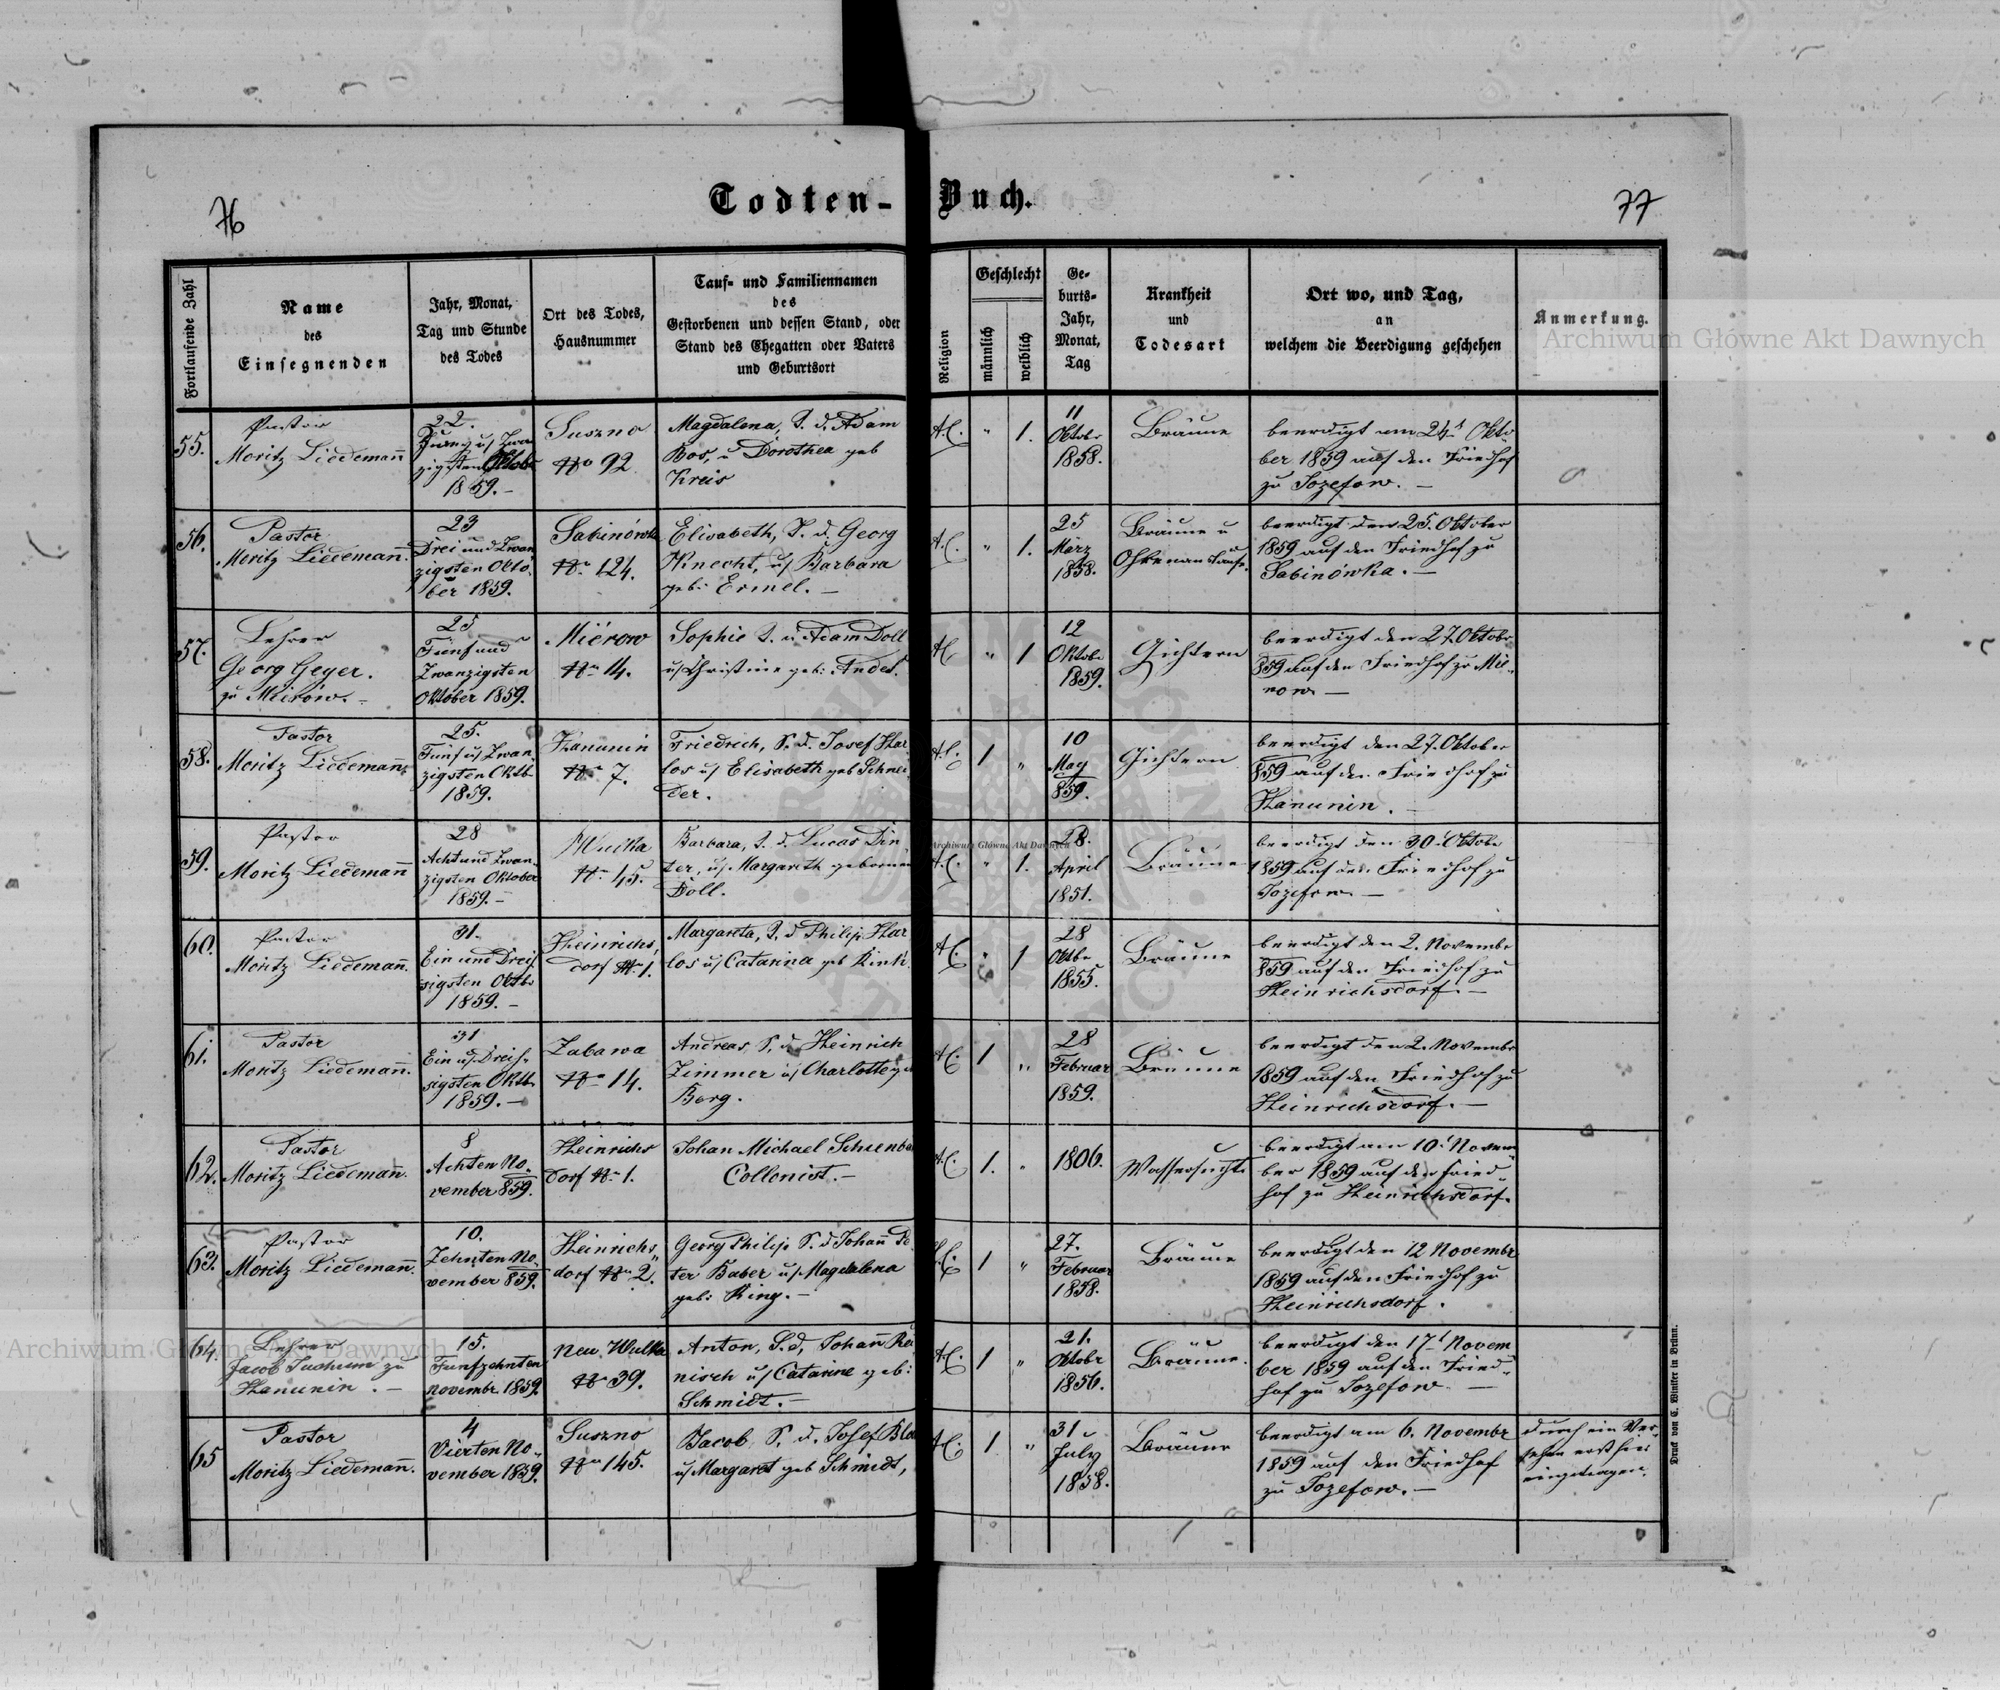 76
Todten-Buch.
77
Fortlaufende Zahl
Name
des
Einsegnenden
Jahr, Monat,
Tag und Stunde
des Todes
Ort des Todes,
Hausnummer
Tauf- und Familiennamen
des
Gestorbenen und dessen Stand, oder
Stand des Ehegatten oder Vaters
und Geburtsort
Religion
Geschlecht
männlich
weiblich
Ge-
burts-
Jahr,
Monat,
Tag
Krankheit
und
Todesart
Ort wo, und Tag,
an
welchem die Beerdigung geschehen
Anmerkung.
55.
Pastor
Moritz Liedemann
22.
zigsten Oktob
1859.-
Suszno
No 92
Magdalena, T. d. Adam
Bos, u Dorothea geb
Kreis
A.C.
"
1.
11
Oktobr
1858.
Bräune
beerdigt am 24t Okto
ber 1859 auf den Friedhof
zu Jozefow. -
56.
Pastor
Moritz Liedemann.
23
Drei und Zwan
zigsten Okto
ber 1859.
Sabinówka
No 124.
Elisabeth, T. d. Georg
Knecht, u/ Barbara
geb: Ermel. -
A.C.
"
1.
25
März
1858.
Bräune u
beerdigt den 25. Oktober
1859 auf den Friedhof zu
Sabinówka. -
57.
Lehrer
Georg Geyer.
zu Meirów. -
25
Fünf und
Zwanzigsten
Oktober 1859.
Miérow
No 14.
Sophie T. d Adam Doll
u/ Christine geb: Andes.
AC
"
1
12
Oktobr
1859.
Gichtern
beerdigt den 27. Oktobr
859 auf den Friedhof zu Mie
row -
58.
Pastor
Moritz Liedemann
25.
Fünf u/ Zwan
zigsten Oktb
1859.
Hanunin
No 7.
Friedrich, S. d. Josef Har
los u/ Elisabeth geb Schnei
der.
A.C.
1
"
10
May
859.
Gichtern
beerdigt den 27. Oktober
859 auf den Friedhof zu
Hanunin. -
59.
Pastor
Moritz Liedemann
28
Acht und Zwan
zigsten Oktober
1859. -
Wulka
No 45.
Barbara, T. d. Lucas Din
ter, u/ Margareth geborne
Doll.
A.C.
"
1.
28.
April
1851.
Bräune
beerdigt den 30t Oktobr
1859 auf den Friedhof zu
Jozefow -
60.
Pastor
Moritz Liedemann.
31.
Ein und Dreis
sigsten Oktbr
1859. -
Heinrichs
dorf No 1.
Margareta, T. d Philip Har
los u/ Catarina geb Rink.
A.C.
"
1
28
Oktbr
1855.
Bräune
beerdigt den 2. Novembr
859 auf den Friedhof zu
Heinrichsdorf. -
61.
Pastor
Moritz Liedemann.
31
Ein u/ Dreis
sigsten Oktb
1859. -
Zabawa
No 14.
Andreas S. d Heinrich
Zimmer u/ Charlotte g
Berg.
A.C.
1
"
28
Februar
1859.
Bräune
beerdigt den 2. Novembr
1859 auf den Friedhof zu
Heinrichsdorf. -
62.
Pastor
Moritz Liedemann.
8
Achten No
vember 859.
Heinrichs
dorf No 1.
Johan Michael
Collonist. -
A.C.
1.
"
1806.
Wassersucht
beerdigt am 10t Novem
ber 1859 auf den Fried
hof zu Heinrichsdorf.
63.
Pastor
Moritz Liedemann.
10.
Zehnten No
vember 859.
Heinrichs
dorf No 2.
Georg Philip S. d Johann Pe
ter Baber u/ Magdalena
geb: Ring. -
A.C.
1
"
27.
Februar
1858.
Bräune
beerdigt den 12 Novembr
1859 auf den Friedhof zu
Heinrichsdorf.
64.
Lehrer
Jacob zu
Hanunin. -
15.
Funfzehnten
novembr 1859
Neu Wulka
No 39.
Anton, S. d, Johann Rei
nisch u/ Catarine geb:
Schmidt. -
A.C.
1
"
21.
Oktobr
1856.
Bräune.
beerdigt den 17t Novem
ber 1859 auf den Fried
hof zu Jozefow -
65
Pastor
Moritz Liedemann.
4
Vierten No
vember 1859.
Suszno
No 145.
Jacob S. d. Josef
u/ Margaret geb Schmidt,
A.C.
1
"
31
July
1858.
Bräune
beerdigt am 6. Novembr
1859 auf den Friedhof
zu Jozefow. -
durch ein Ver
sehen erst hier
eingetragen.
Druck von C. Winiker in Brünn.
Archiwum Główne Akt Dawnych
Archiwum Główne Akt Dawnych
Archiwum Główne Akt Dawnych